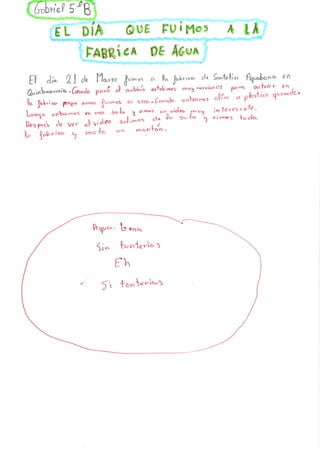 Gabriel 5ºB
EL DÍA QUE FUIMOS A LA
FÁBRICA DE AGUA
El día 21 de Marzo fuimos a la fábrica de Santolín Aquabona en
Quintanaurria. Cuando paró el autobús estabamos muy nerviosos para entrar en
la fábrica porque nunca fuimos a una. Cuando entramos olía a plástico quemado.
Luego entramos en una sala y vimos un video muy interesante.
Después de ver el video salimos de la sala y vimos toda
la fábrica y mola un montón.
Agua buena
Sin tonterias
Eh
Si tonterias